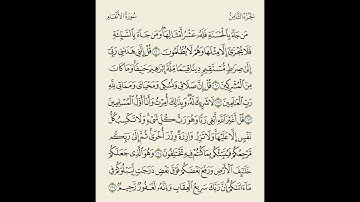 الجزء الثامن
سورة الأنعام
مَن جَآءَ بِٱلْحَسَنَةِ فَلَهُۥ عَشْرُ أَمْثَالِهَا ۖ وَمَن جَآءَ بِٱلسَّيِّئَةِ
فَلَا يُجْزَىٰٓ إِلَّا مِثْلَهَا وَهُمْ لَا يُظْلَمُونَ ۝ قُلْ إِنَّنِى هَدَىٰنِى رَبِّىٓ
إِلَىٰ صِرَٰطٍ مُّسْتَقِيمٍ دِينًا قِيَمًا مِّلَّةَ إِبْرَٰهِيمَ حَنِيفًا ۚ وَمَا كَانَ
مِنَ ٱلْمُشْرِكِينَ ۝ قُلْ إِنَّ صَلَاتِى وَنُسُكِى وَمَحْيَاىَ وَمَمَاتِى لِلَّهِ
رَبِّ ٱلْعَٰلَمِينَ ۝ لَا شَرِيكَ لَهُۥ ۖ وَبِذَٰلِكَ أُمِرْتُ وَأَنَا۠ أَوَّلُ ٱلْمُسْلِمِينَ
۝ قُلْ أَغَيْرَ ٱللَّهِ أَبْغِى رَبًّا وَهُوَ رَبُّ كُلِّ شَىْءٍ ۚ وَلَا تَكْسِبُ كُلُّ
نَفْسٍ إِلَّا عَلَيْهَا ۚ وَلَا تَزِرُ وَازِرَةٌ وِزْرَ أُخْرَىٰ ۚ ثُمَّ إِلَىٰ رَبِّكُم
مَّرْجِعُكُمْ فَيُنَبِّئُكُم بِمَا كُنتُمْ فِيهِ تَخْتَلِفُونَ ۝ وَهُوَ ٱلَّذِى جَعَلَكُمْ
خَلَٰٓئِفَ ٱلْأَرْضِ وَرَفَعَ بَعْضَكُمْ فَوْقَ بَعْضٍ دَرَجَٰتٍ لِّيَبْلُوَكُمْ فِى
مَآ ءَاتَىٰكُمْ ۗ إِنَّ رَبَّكَ سَرِيعُ ٱلْعِقَابِ وَإِنَّهُۥ لَغَفُورٌ رَّحِيمٌۢ ۝